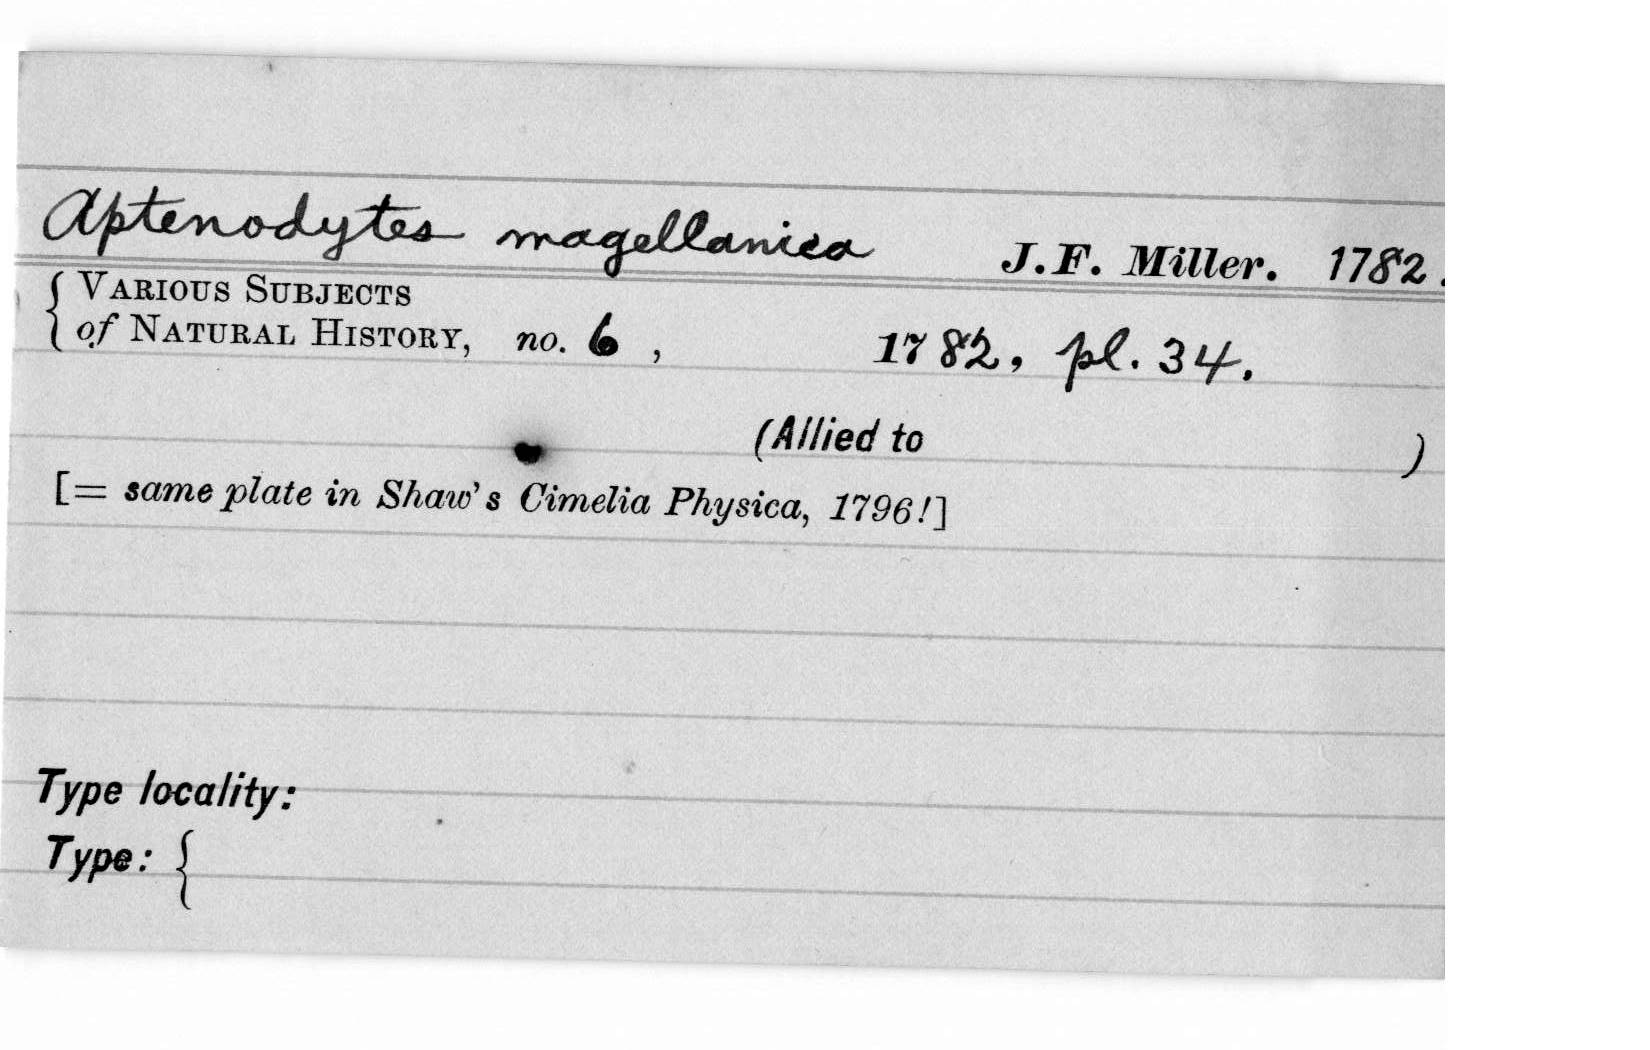 Aptenodytes magellanica J.F. Miller. 1782.
{ VARIOUS SUBJECTS
of NATURAL HISTORY, no. 6, 1782, pl. 34.
(Allied to )
[= same plate in Shaw's Cimelia Physica, 1796!]
Type locality:
Type: {